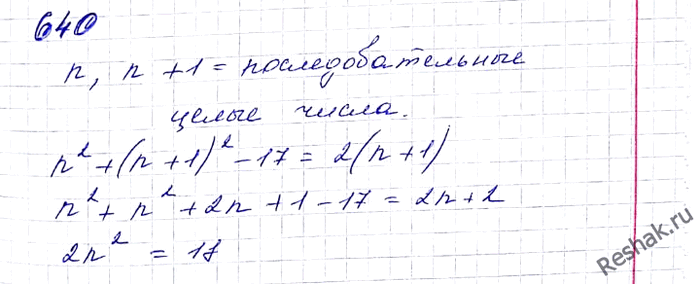 640
n, n + 1 = последовательные
целые числа.
n² + (n + 1)² - 17 = 2(n + 1)
n² + n² + 2n + 1 - 17 = 2n + 2
2n² = 18
Reshak.ru